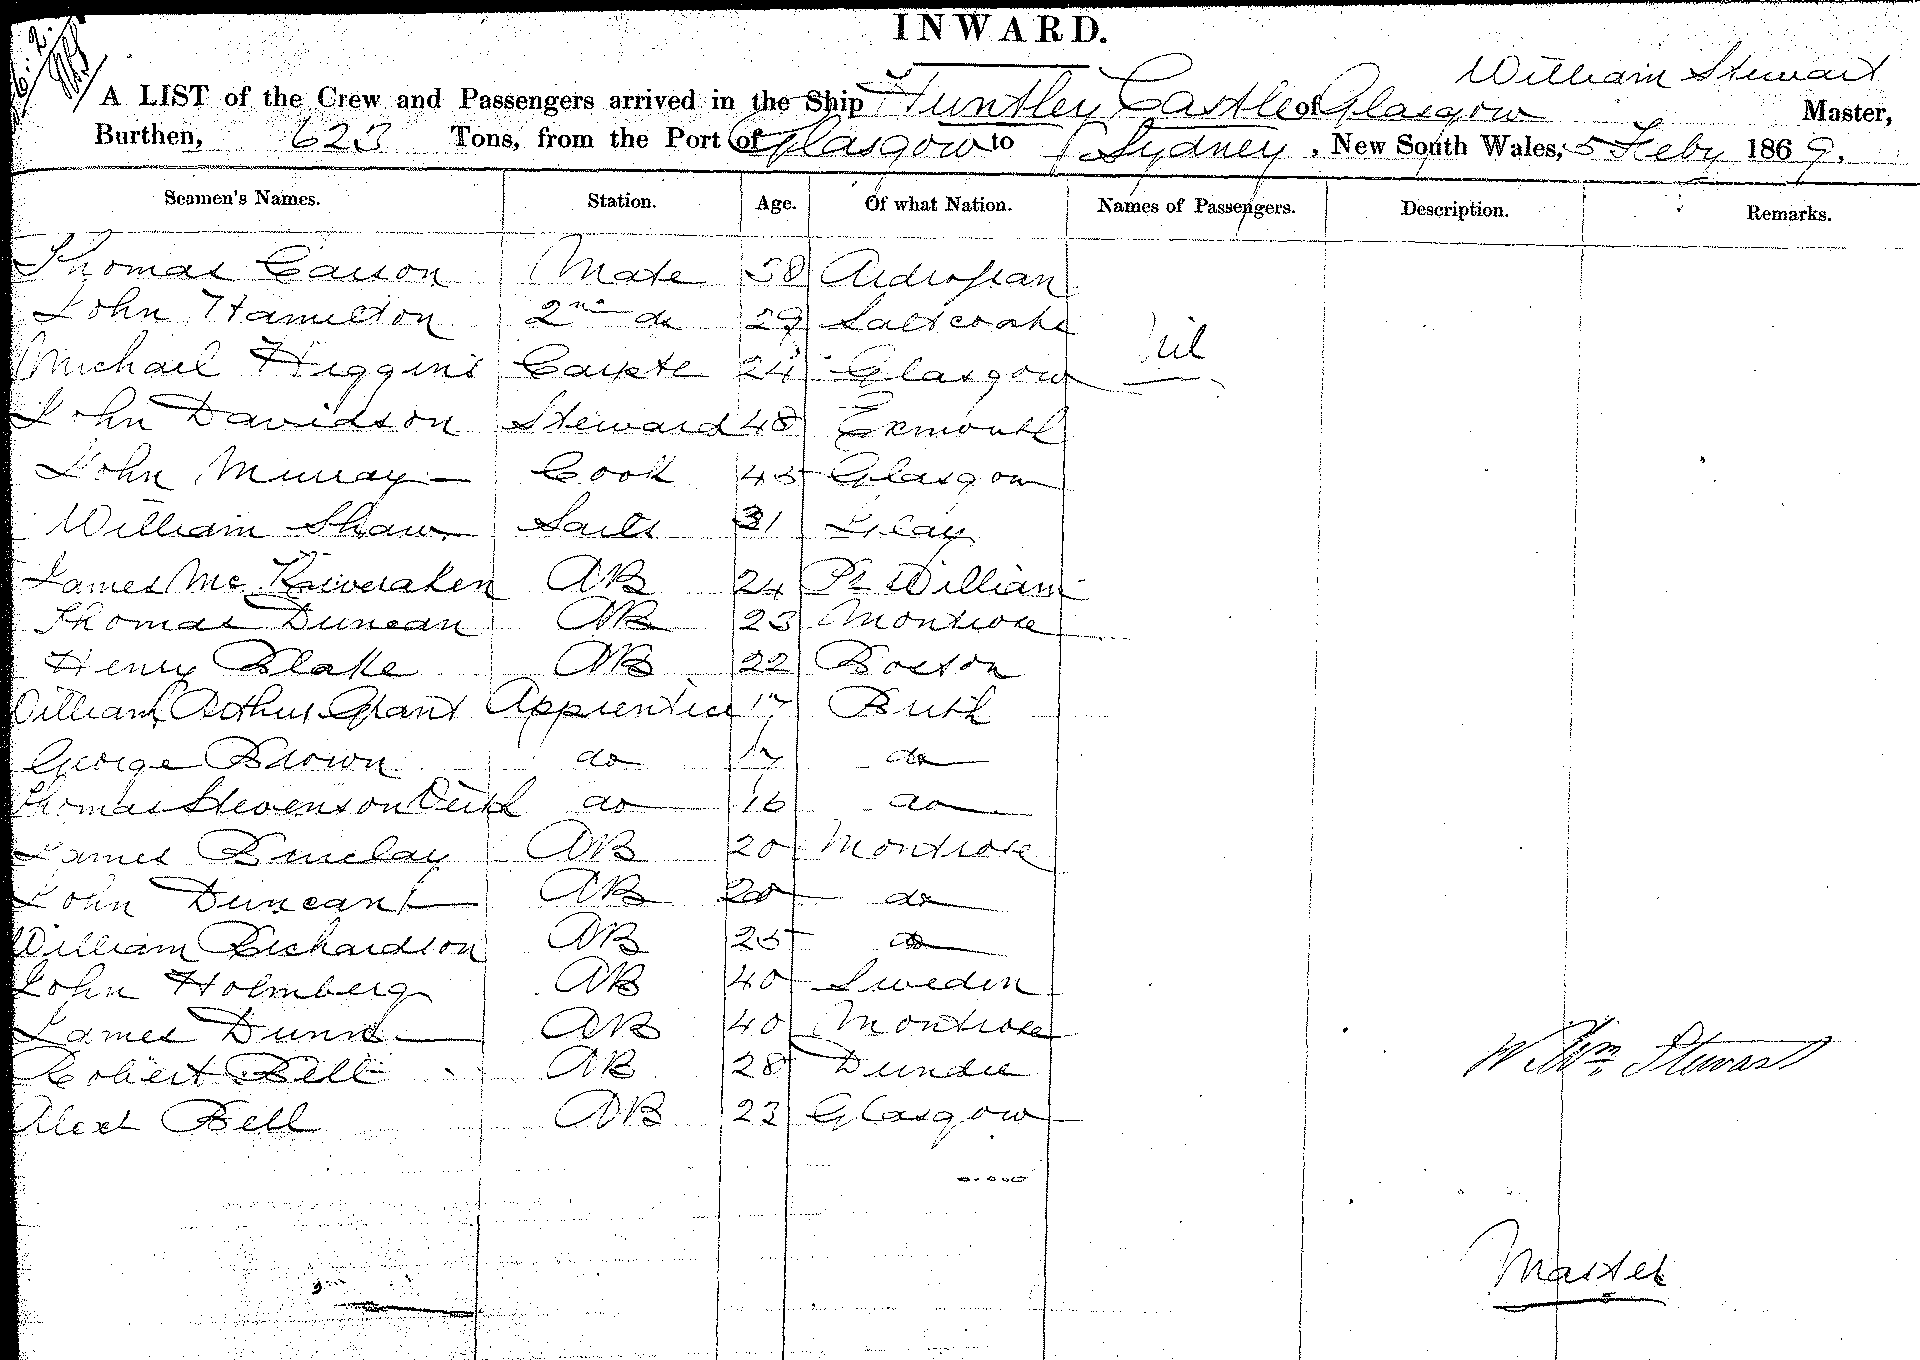 INWARD.
William Stewart
A LIST of the Crew and Passengers arrived in the Ship Huntley Castle of Glasgow Master,
Burthen, 623 Tons, from the Port of Glasgow to Sydney, New South Wales, 5 Feby 1869.
Seamen's Names. Station. Age. Of what Nation. Names of Passengers. Description. Remarks.
Thomas Carson Mate 38 Ardrossan
John Hamilton 2nd do 29 Saltcoats
Nil
Michael Higgins Carpte 24 Glasgow
John Davidson Steward 48 Exmouth
John Murray Cook 45 Glasgow
William Shaw Sails 31 Islay
James Mc AB 24 Pt William
Thomas Duncan AB 23 Montrose
Henry Blake AB 22 Boston
William Arthur Grant Apprentice 17
George Brown do 17 do
Thomas Stevenson do 16 do
James AB 20 Montrose
John Duncan AB 20 do
William Richardson AB 25 do
John Holmberg AB 40 Sweden
James Dunn AB 40 Montrose
Robert Bell AB 28 Dundee
Wm Stewart
Alexr Bell AB 23 Glasgow
Master